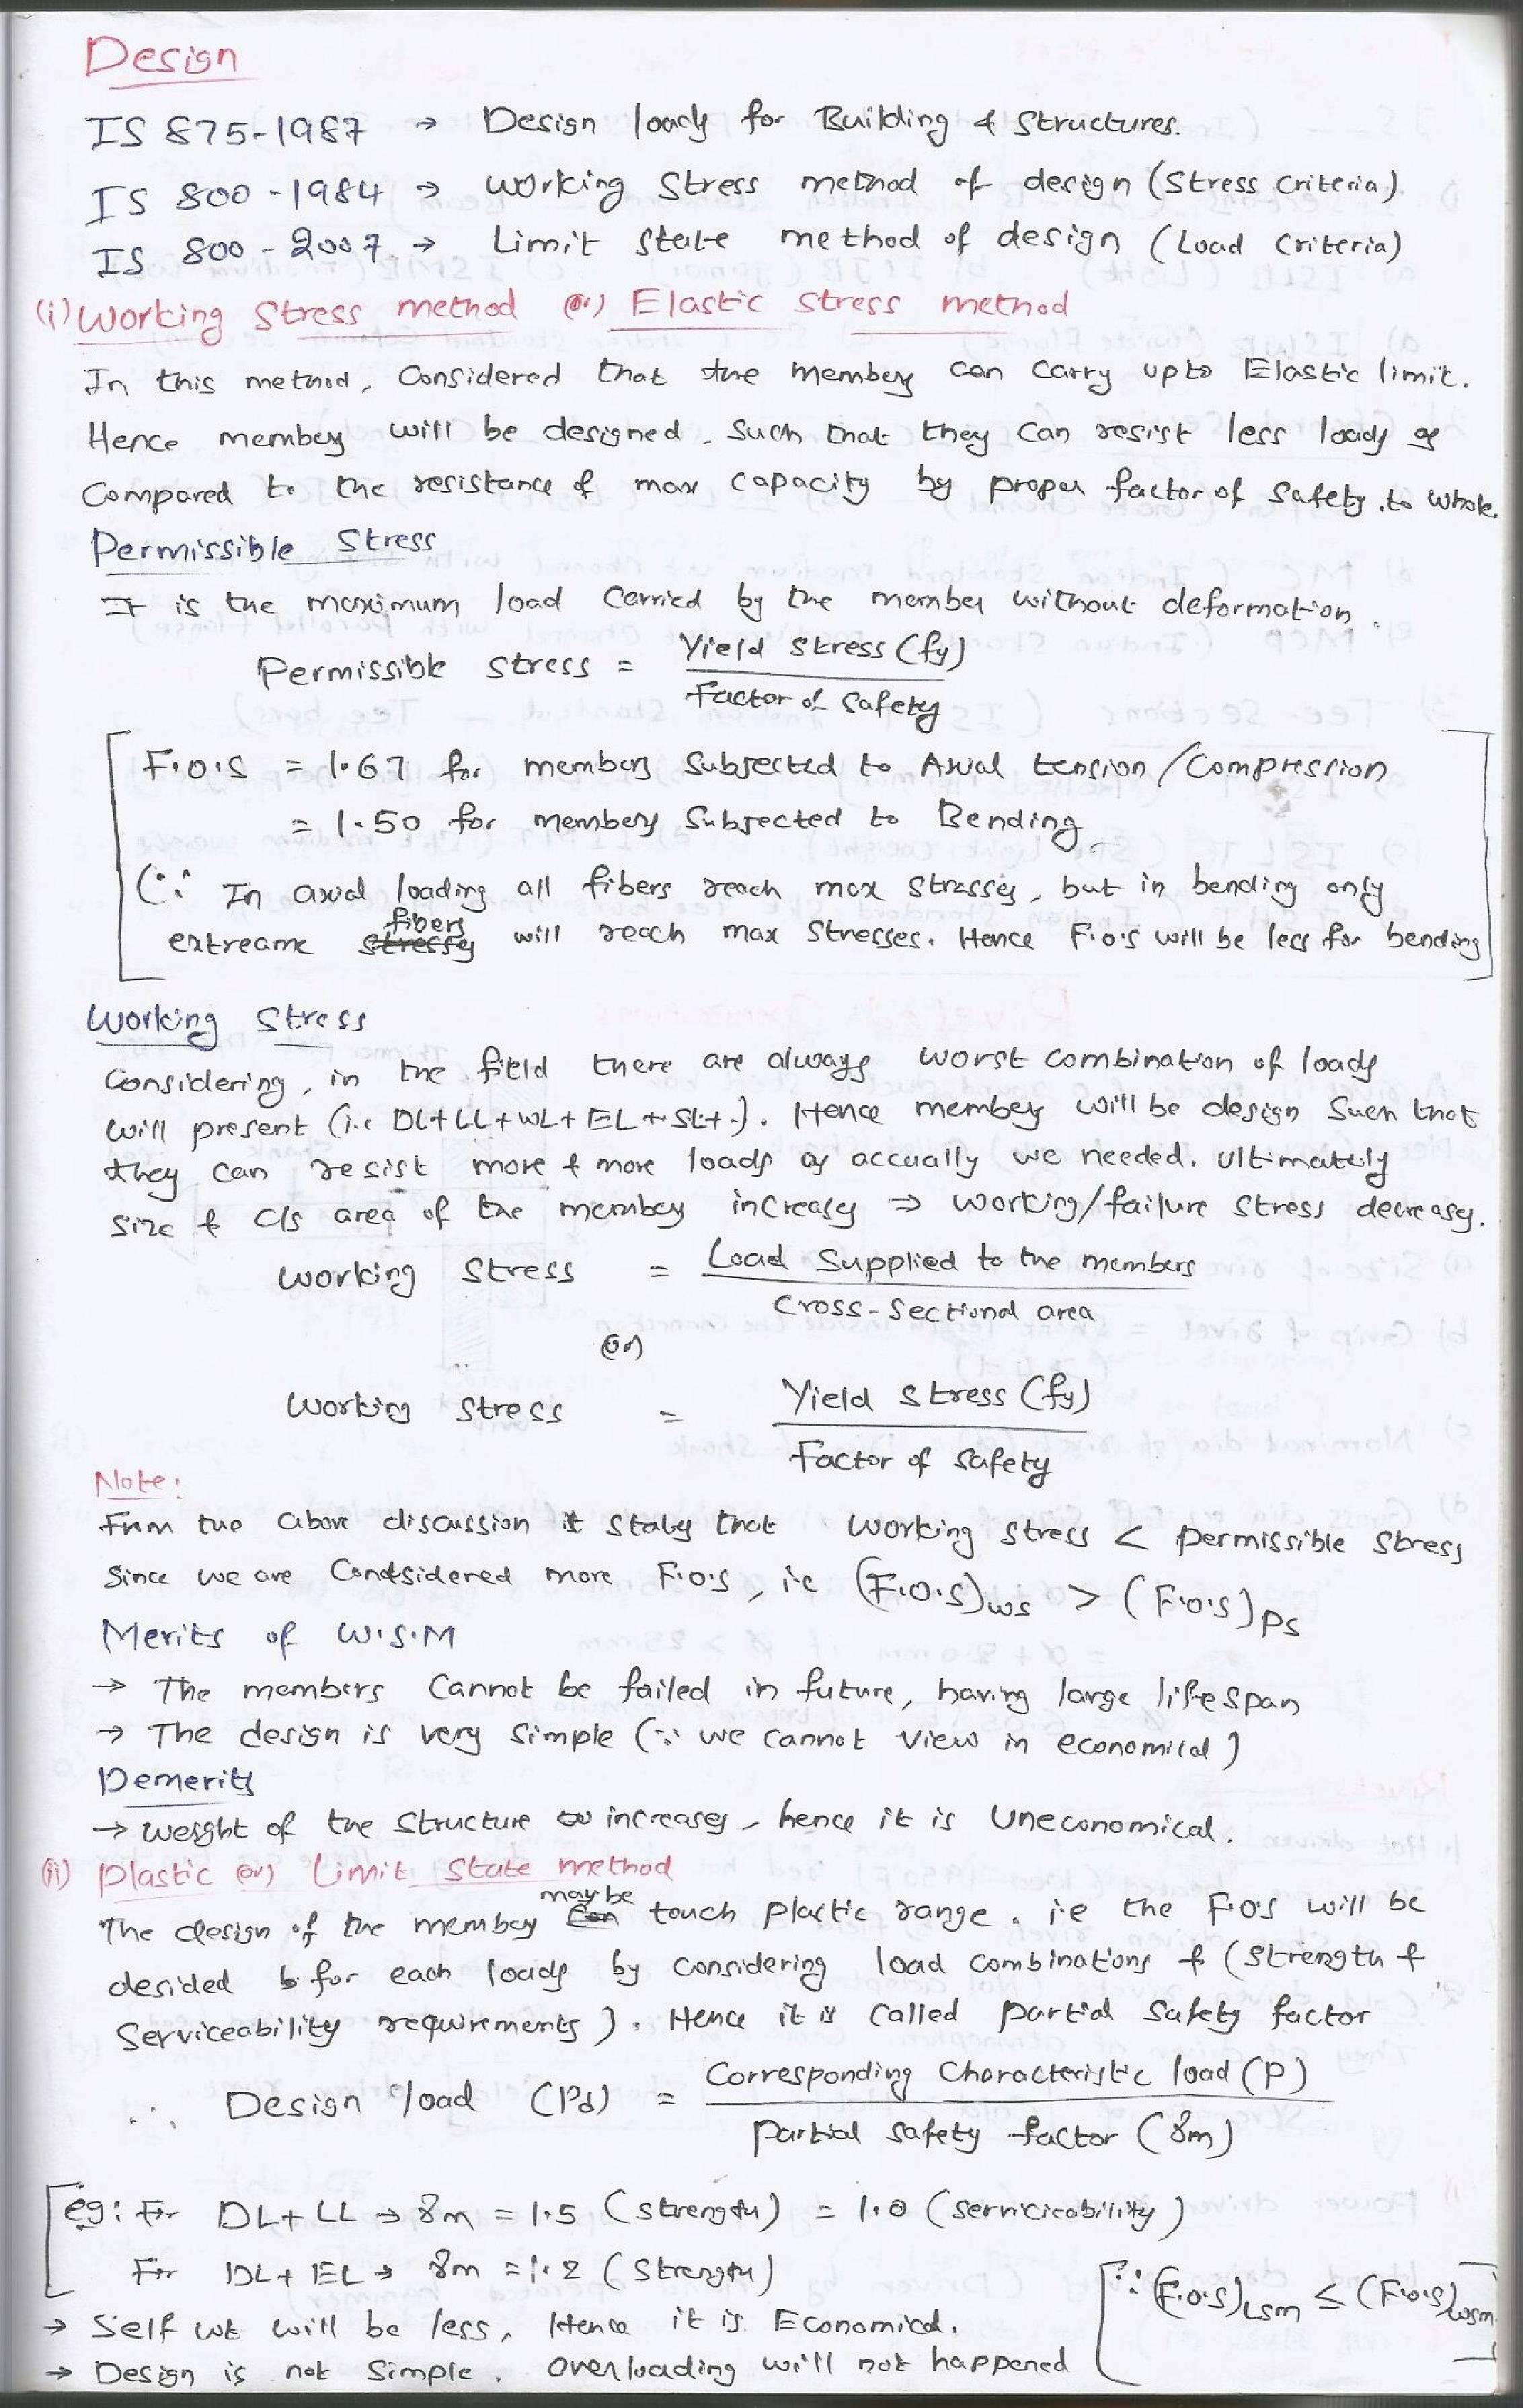 Design
IS 875-1987 → Design loads for Building & Structures.
IS 800-1984 → Working Stress method of design (Stress criteria)
IS 800-2007 → Limit State method of design (Load Criteria)
(i) Working Stress method (or) Elastic Stress method
In this method, Considered that the members can carry upto Elastic limit.
Hence members will be designed, such that they can resist less loads as
Compared to the resistance of max capacity by proper factor of safety .to whole.
Permissible Stress
It is the maximum load carried by the member without deformation.
Permissible stress = Yield stress (fy)
Factor of Safety
F.O.S = 1.67 for members Subjected to Axial tension/Compression
= 1.50 for members Subjected to Bending
(∵ In axial loading all fibers reach max stresses, but in bending only
fibers
extreame stresses will reach max stresses. Hence F.o.s will be less for bending
Working Stress
Considering, in the field there are always worst combination of loads
will present (i.e DL+LL+WL+EL+SL+.). Hence members will be design such that
they can resist more & more loads as accually we needed. Ultimately
size & c/s area of the members increases ⇒ working/failure stress decreases.
Working Stress = Load Supplied to the members
Cross-Sectional area
(or)
Working stress = Yield stress (fy)
Factor of safety
Note:
From the above discussion it states that working stress < permissible stress
Since we are Condsidered more F.O.S, i.e (F.O.S)ws > (F.O.S)PS
Merits of W.S.M
→ The members cannot be failed in future, having large life span
→ The design is very simple (∵ we cannot view in economical)
Demerits
→ Weight of the structure increases, hence it is Uneconomical.
(ii) Plastic (or) Limit State method
may be
The design of the members can touch plastic range. i.e the F.O.S will be
desided for each loads by considering load combinations & (strength &
Serviceability requirements). Hence it is called partial safety factor
∴ Design load (Pd) = Corresponding Characteristic load (P)
Partial safety factor (γm)
eg: For DL+LL → γm = 1.5 (strength) = 1.0 (servicicability)
For DL+EL → γm = 1.2 (strength)
[∵ (F.o.s)LSM ≤ (F.o.s)WSM
→ Self wt will be less, Hence it is Economical.
→ Design is not simple. Overloading will not happened